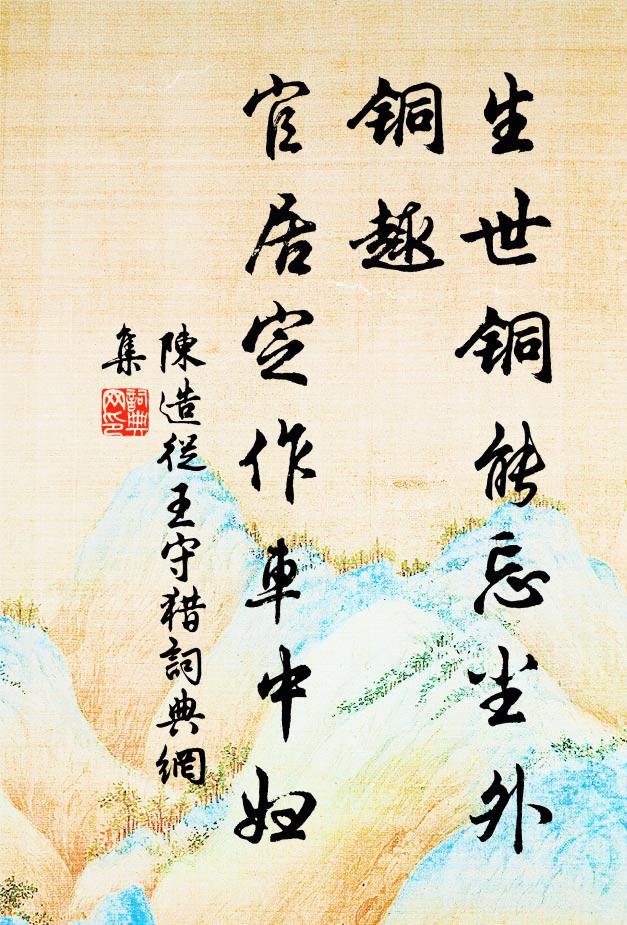 生世铜能忘尘外
铜趣
官居定作車中妇
陳造從王守猎詞典網
集
詞典
网印